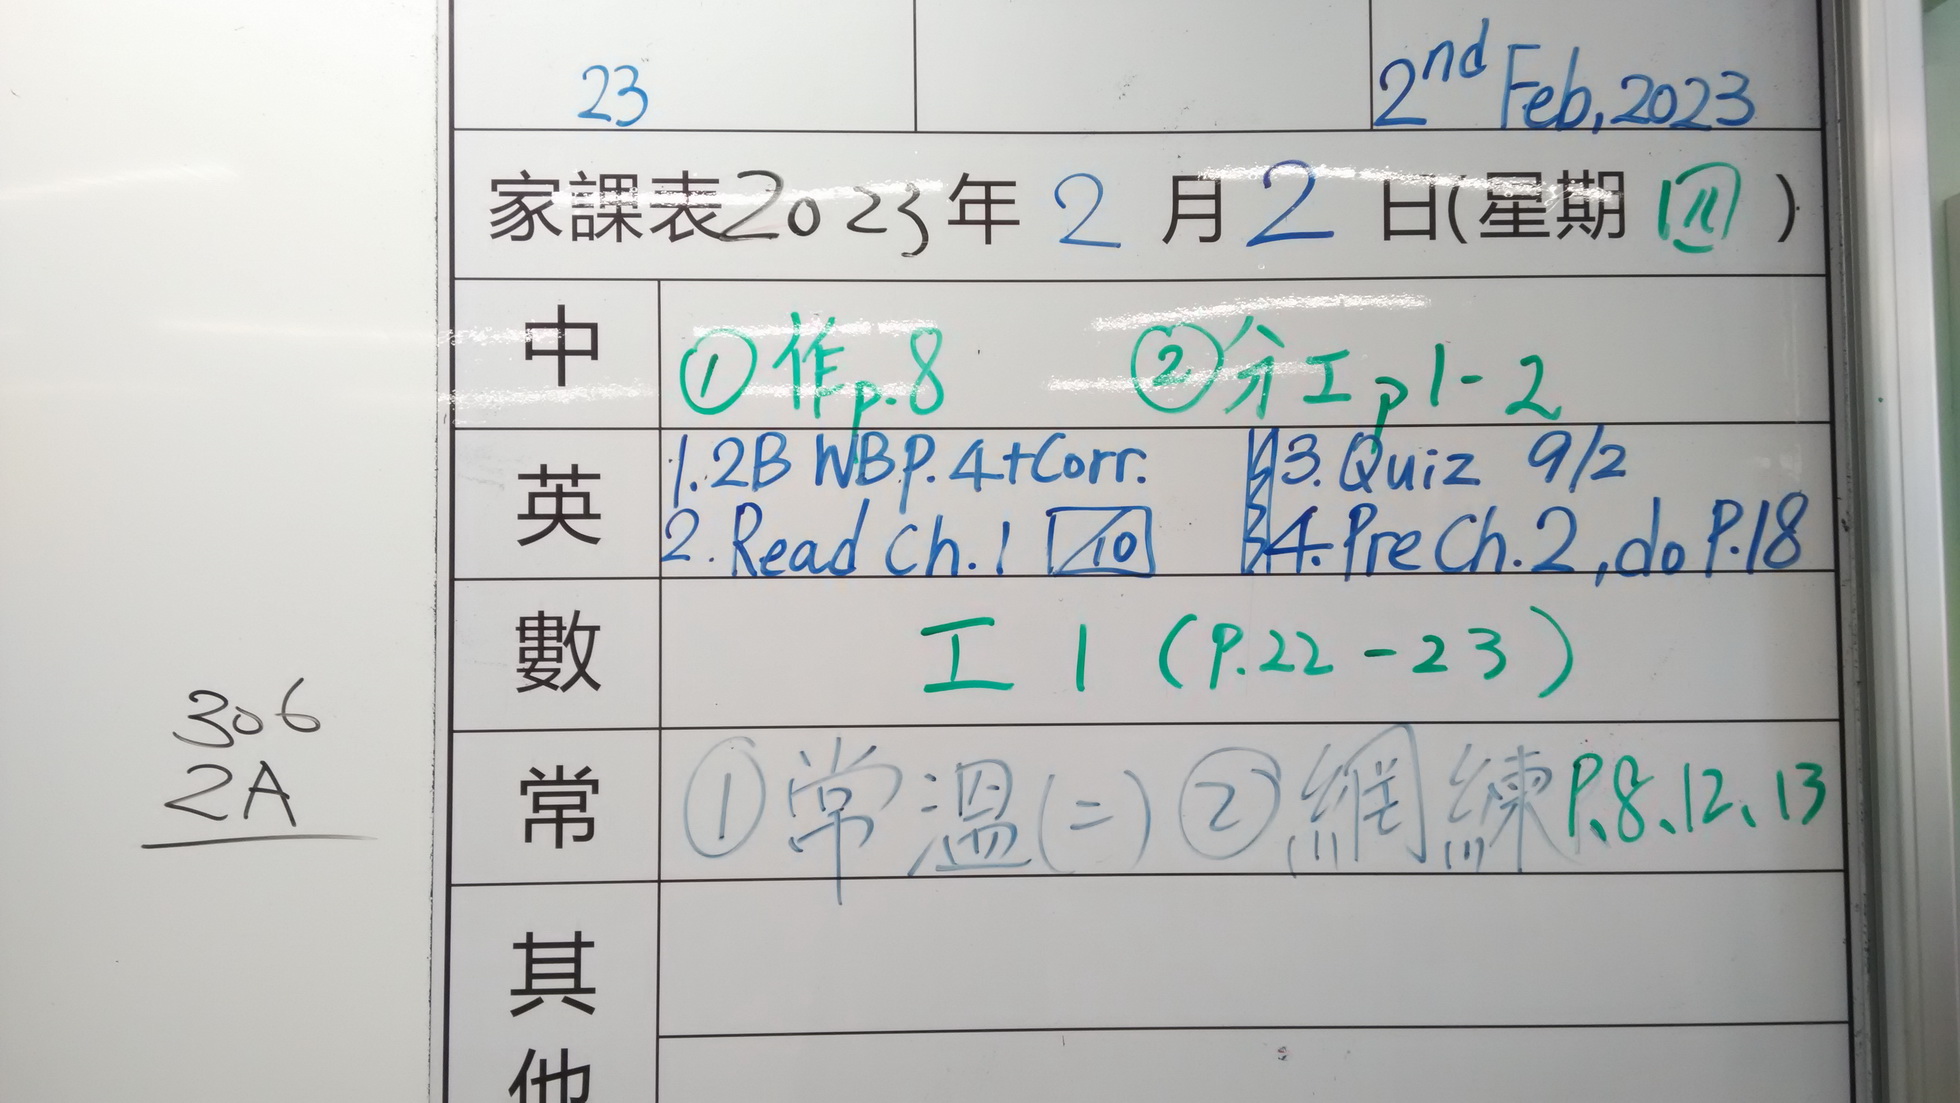 23
2nd Feb, 2023
家課表2023年 2 月 2 日(星期 四 )
中 ①作p.8 ②分工p1-2
英 1. 2B WB P.4+Corr. 3. Quiz 9/2
2. Read Ch.1 /10 4. Pre Ch.2, do P.18
數 工 1 (P.22-23)
常 ①常溫(二) ②網練 P.8、12、13
其他
306
2A